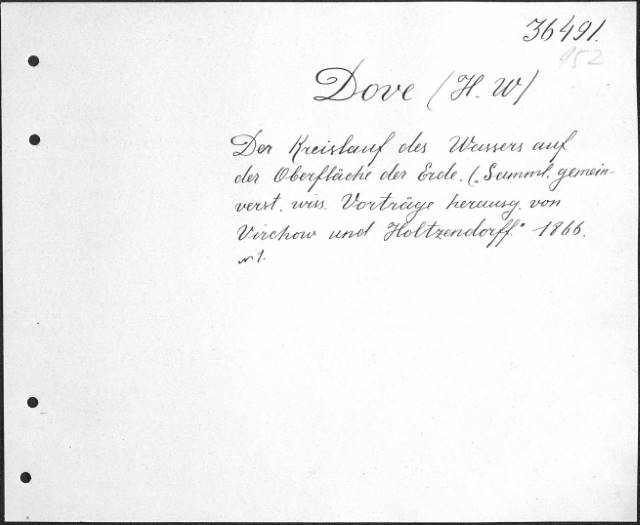 36491.
952
Dove (H. W)
Der Kreislauf des Wassers auf
der Oberfläche der Erde. („Samml. gemein-
verst. wis. Vorträge herausg. von
Virchow und Holtzendorff." 1866.
№ 1.